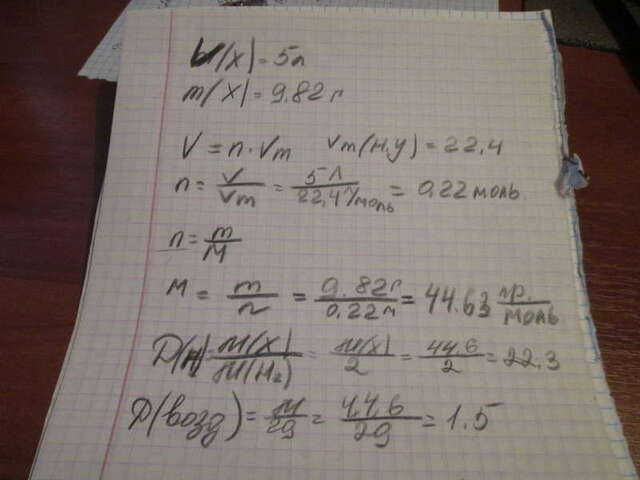 V(X) = 5л
m(X) = 9.82 г
V = n · Vm Vm(н.у) = 22,4
n = V/Vm = 5 л/22,4 л/моль = 0,22 моль
n = m/M
M = m/n = 9.82г/0,22м = 44.63 гр./моль
D(H₂) = M(X)/M(H₂) = M(X)/2 = 44,6/2 = 22.3
D(возд) = M/29 = 44,6/29 = 1.5